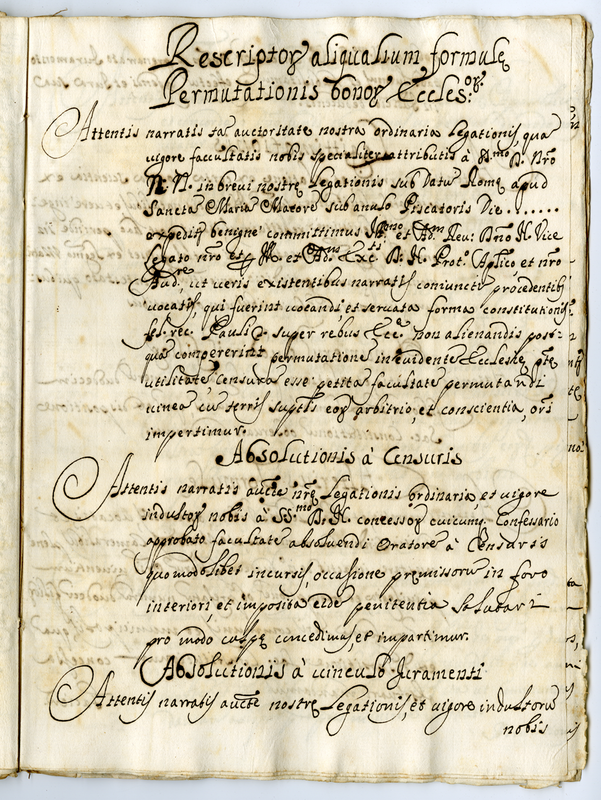 Rescriptoȝ aliqualium formulę
Permutationis bonoȝ Eccles:
Attentis narratis tā auctoritate nostra ordinaria Legationis, qua
vigore facultatis nobis specialiter attributis à Smo D. Nro
N: N. in brevi nostrę Legationis sub Datū Romę apud
Sanctā Mariā Maiorē sub anulo Piscatoris Die......
expeditis benigne committimus et Reu: Dno N. Vice
Legato nrō et et D: N. Prot. Aplico et nrō
Aud.re, ut ueris existentibus narratis coniunctū procedentibȝ
uocatis, qui fuerint uocandi et seruata forma constitutionis
fel. rec. Pauli 2. super rebus Ecc.ę non alienandis post-
quā compererint permutationē in euidentē Ecclesię
utilitatē censura esse petita facultatē permutandi
uineā cū terris eoȝ arbitrio, et conscientia, ori
impertimur.
Absolutionis à Censuris
Attentis narratis aucte nrę Legationis ordinaria, et uigore
indultoȝ nobis à SS.mo D. N. concessoȝ cuicumq. Confessario
approbato facultatē absoluendi Oratorē à Censuris
quomodolibet incursis, occasione pręmissorū in foro
interiori, et imposita eidē penitentia salutari
pro modo culpę concedimus, et impartimur.
Absolutionis à uinculo Iuramenti
Attentis narratis aucte nostrę Legationis, et uigore indultorū
nobis